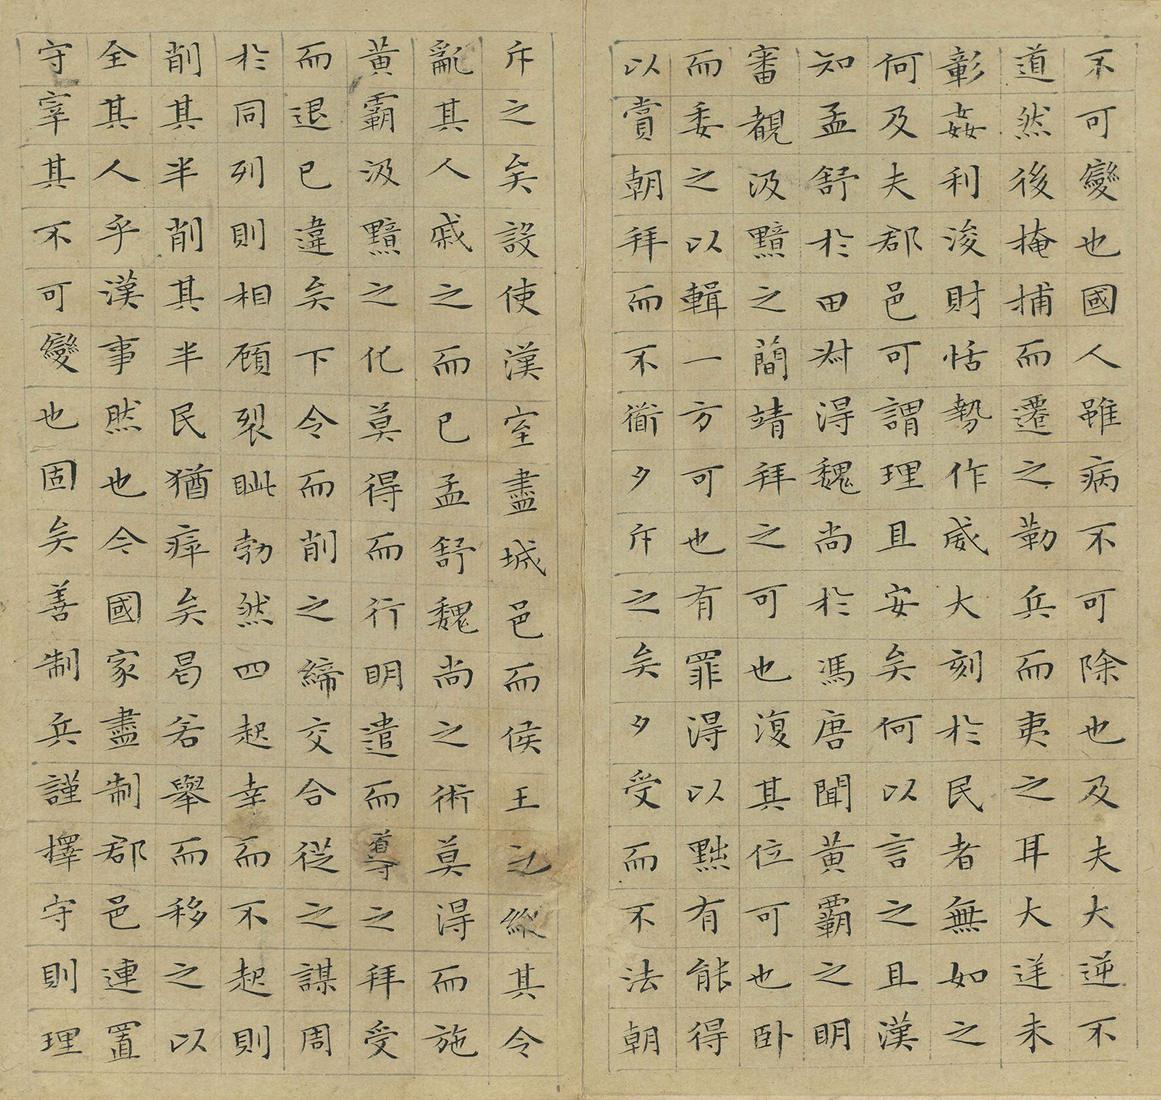 不可變也國人雖病不可除也及夫大逆不
道然後掩捕而遷之勒兵而夷之耳大逆未
彰姦利浚財恬勢作威大刻於民者無如之
何及夫郡邑可謂理且安矣何以言之且漢
知孟舒於田尗得魏尚於馮唐聞黃霸之明
審覩汲黯之簡靖拜之可也復其位可也卧
而委之以輯一方可也有罪得以黜有能得
以賞朝拜而不衜夕斥之矣夕受而不法朝
斥之矣設使漢室盡城邑而侯王之縱其令
亂其人戚之而已孟舒魏尚之術莫得而施
黃霸汲黯之化莫得而行明遣而導之拜受
而退已違矣下令而削之締交合從之謀周
於同列則相顧裂眦勃然四起幸而不起則
削其半削其半民猶瘁矣曷若舉而移之以
全其人乎漢事然也今國家盡制郡邑連置
守宰其不可變也固矣善制兵謹擇守則理